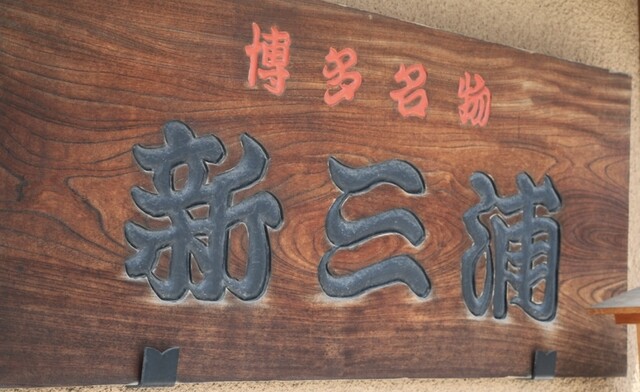 博多名物
新三浦